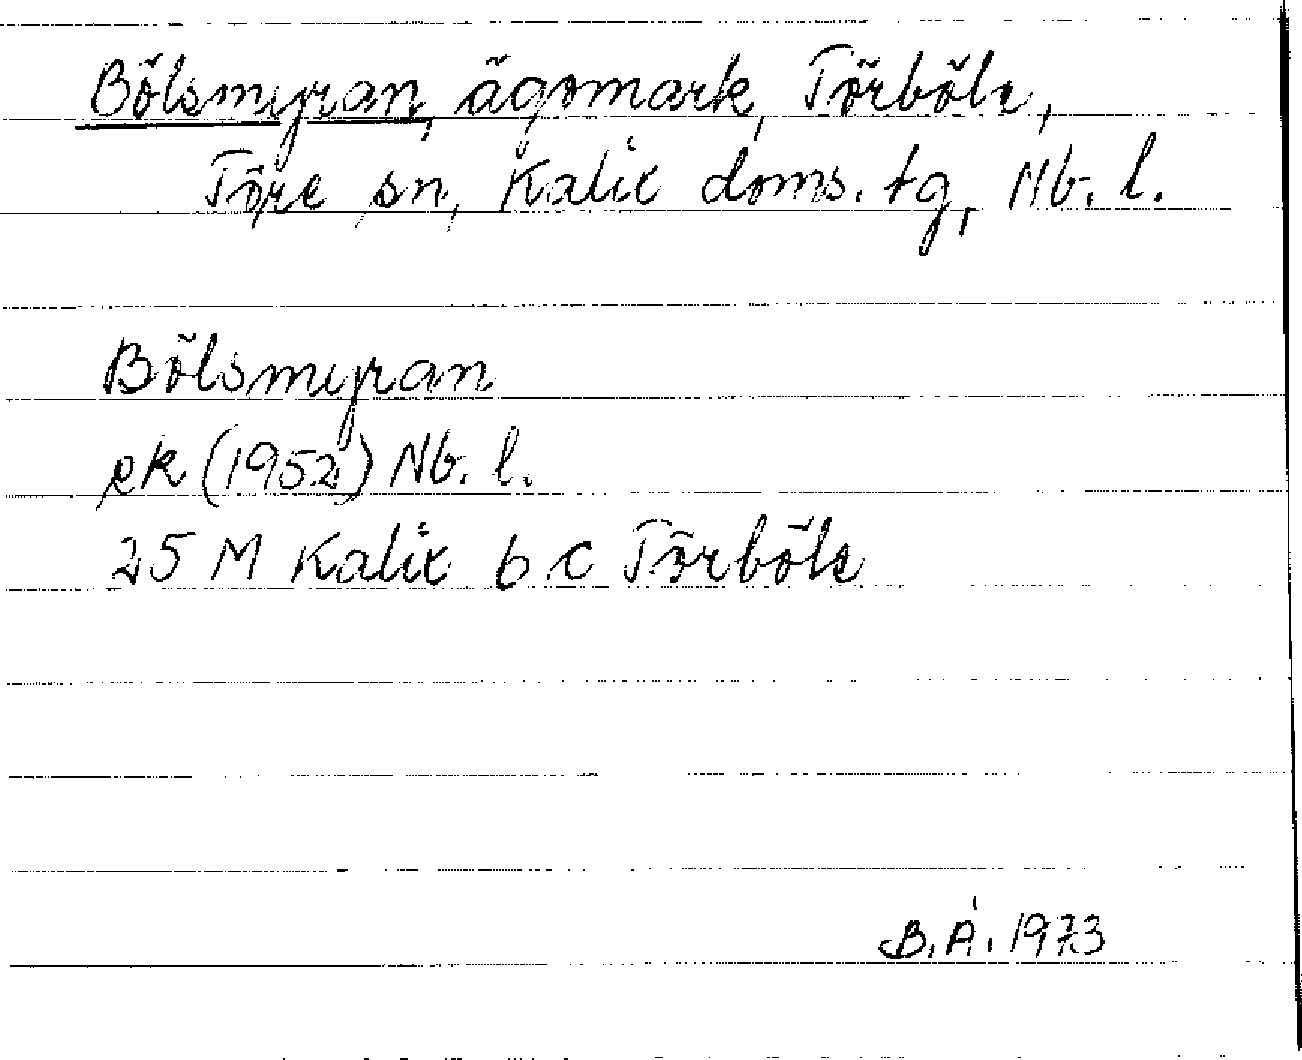 Bölsmyran, ägomark, Törböle,
Töre sn, Kalix doms. tg, Nb. l.
Bölsmyran
ek (1952) Nb. l.
25 M Kalix 6 c Törböle
B. Å. 1973